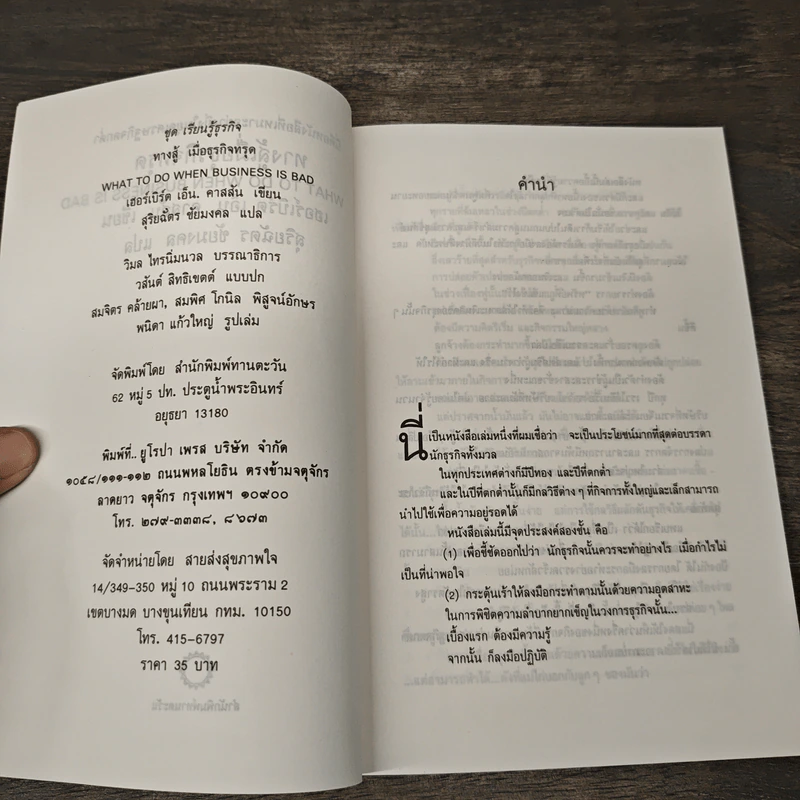 ชุด เรียนรู้ธุรกิจ
ทางสู้ เมื่อธุรกิจทรุด
WHAT TO DO WHEN BUSINESS IS BAD
เฮอร์เบิร์ต เอ็น. คาสสัน เขียน
สุริยฉัตร ชัยมงคล แปล
วิมล ไทรนิ่มนวล บรรณาธิการ
วสันต์ สิทธิเขตต์ แบบปก
สมจิตร คล้ายผา, สมพิศ โกนิล พิสูจน์อักษร
พนิดา แก้วใหญ่ รูปเล่ม
จัดพิมพ์โดย สำนักพิมพ์ทานตะวัน
62 หมู่ 5 ปท. ประตูน้ำพระอินทร์
อยุธยา 13180
พิมพ์ที่.. ยูโรปา เพรส บริษัท จำกัด
๑๐๕๘/๑๑๑-๑๑๒ ถนนพหลโยธิน ตรงข้ามจตุจักร
ลาดยาว จตุจักร กรุงเทพฯ ๑๐๙๐๐
โทร. ๒๗๙-๓๓๓๘, ๘๖๗๓
จัดจำหน่ายโดย สายส่งสุขภาพใจ
14/349-350 หมู่ 10 ถนนพระราม 2
เขตบางมด บางขุนเทียน กทม. 10150
โทร. 415-6797
ราคา 35 บาท
คำนำ
นี่เป็นหนังสือเล่มหนึ่งที่ผมเชื่อว่า จะเป็นประโยชน์มากที่สุดต่อบรรดา
นักธุรกิจทั้งมวล
ในทุกประเทศต่างก็มีปีทอง และปีที่ตกต่ำ
และในปีที่ตกต่ำนั้นก็มีกลวิธีต่าง ๆ ที่กิจการทั้งใหญ่และเล็กสามารถ
นำไปใช้เพื่อความอยู่รอดได้
หนังสือเล่มนี้มีจุดประสงค์สองขั้น คือ
(1) เพื่อชี้ชัดออกไปว่า นักธุรกิจนั้นควรจะทำอย่างไร เมื่อกำไรไม่
เป็นที่น่าพอใจ
(2) กระตุ้นเร้าให้ลงมือกระทำตามนั้นด้วยความอุตสาหะ
ในการพิชิตความลำบากยากเข็ญในวงการธุรกิจนั้น...
เบื้องแรก ต้องมีความรู้
จากนั้น ก็ลงมือปฏิบัติ